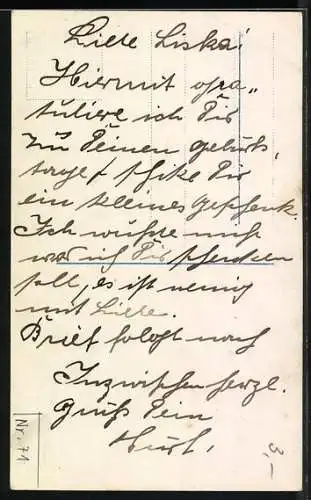 Liebe Liska!
Hiermit gra„
tuliere ich Dir
zu Deinen Geburts,
tage / schike Dir
ein kleines Geschenk.
Ich wußte nich
was ich Dir schenken
soll, es ist wenig
mit Liebe.
Brief folgt noch
Inzwischen herzl.
Gruß Dein
Nr. 71
3,—